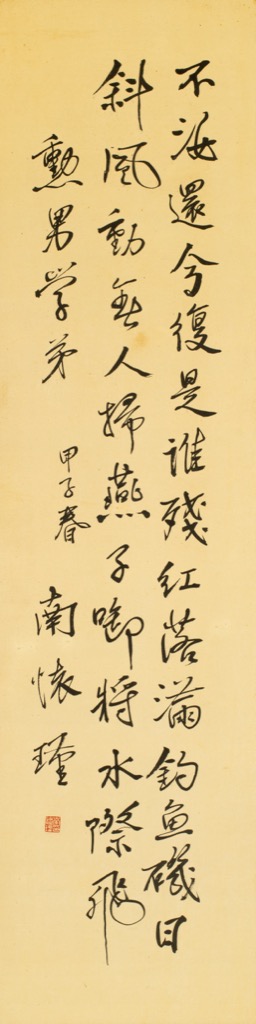 不汝還兮復是誰殘紅落滿釣魚磯日
斜風動無人掃燕子啣將水際飛
勳男學弟
甲子春
南懷瑾